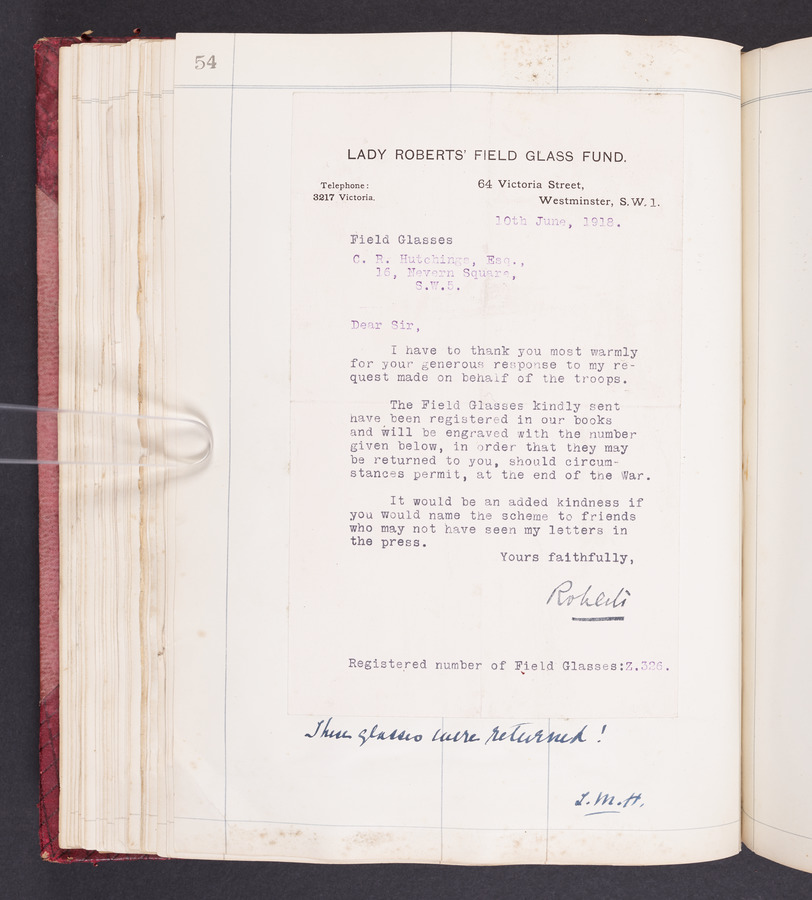 54
LADY ROBERTS' FIELD GLASS FUND.
Telephone:
3217 Victoria.
64 Victoria Street,
Westminster, S.W.1.
10th June, 1918.
Field Glasses
C. R. Hutchings, Esq.,
16, Nevern Square,
S.W.5.
Dear Sir,
I have to thank you most warmly
for your generous response to my re-
quest made on behalf of the troops.
The Field Glasses kindly sent
have been registered in our books
and will be engraved with the number
given below, in order that they may
be returned to you, should circum-
stances permit, at the end of the War.
It would be an added kindness if
you would name the scheme to friends
who may not have seen my letters in
the press.
Yours faithfully,
Roberts
Registered number of Field Glasses:Z.326.
These glasses were returned!
I.M.H.